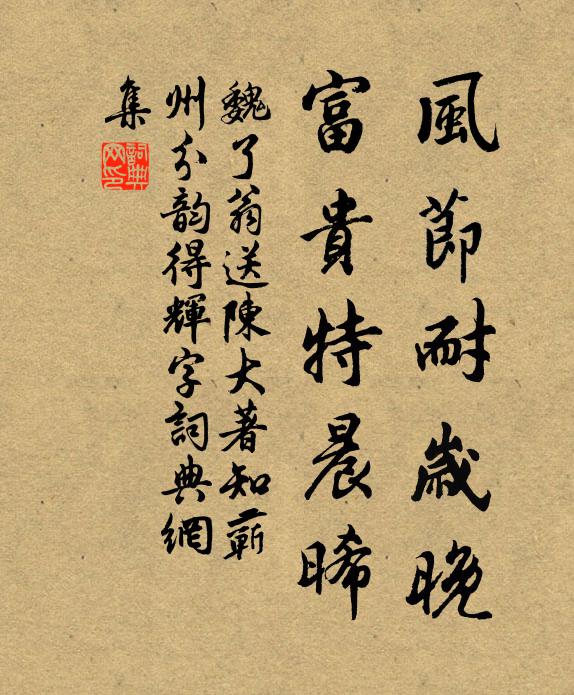 風節耐歲晚
富貴特晨晞
魏了翁送陳大著知蘄
州分韵得輝字詞典網
集
詞典
网印